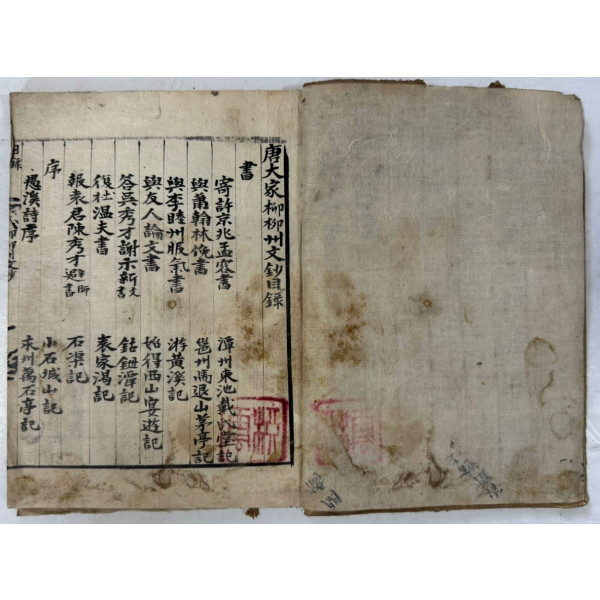 唐大家柳柳州文鈔目錄
書
寄許京兆孟容書 潭州東池戴氏堂記
與蕭翰林俛書 邕州馬退山茅亭記
與李睦州服氣書 游黃溪記
與友人論文書 始得西山宴遊記
答吳秀才謝示新文書 鈷鉧潭記
復杜溫夫書 袁家渴記
報袁君陳秀才避師書 石渠記
序 小石城山記
愚溪詩序 永州萬石亭記
目錄
州文鈔